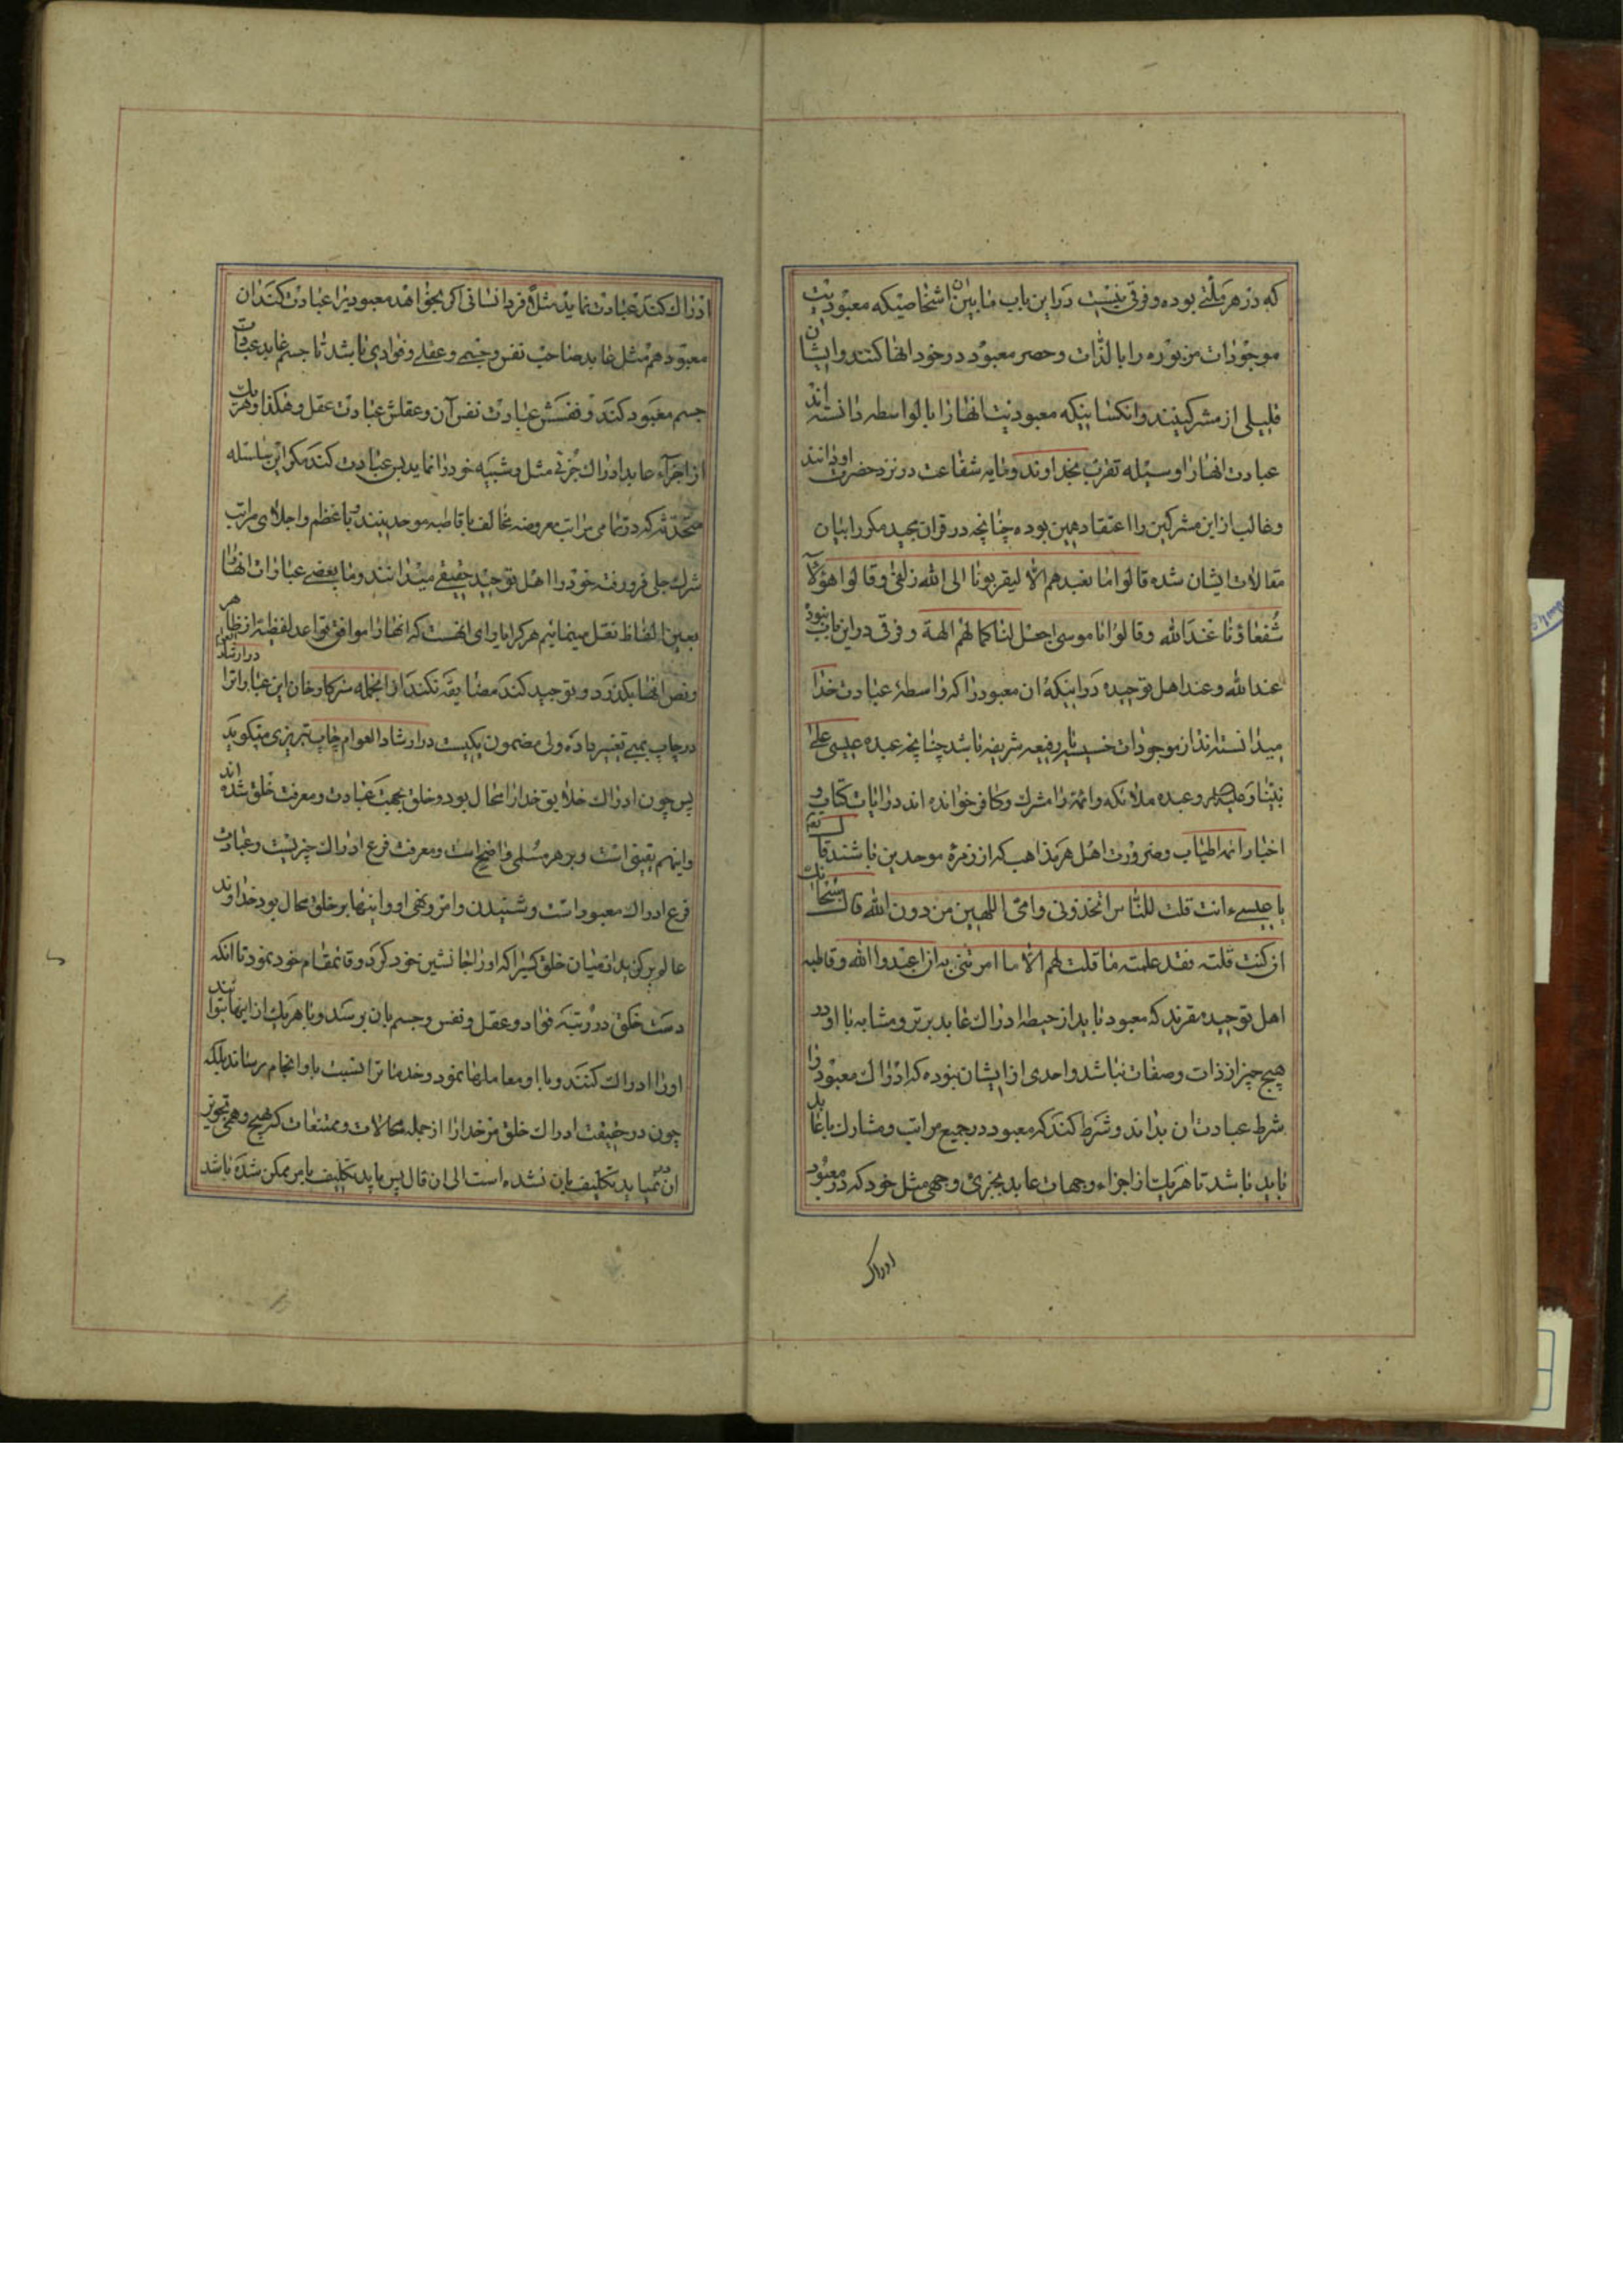 که در هر ملتی بوده و فرقی نیست در این باب مابین اشخاصیکه معبودیت
موجودات مزبوره را بالذات و حصر معبود در خود انها کنند و ایشان
قلیلی از مشرکینند و انکسانیکه معبودیت انها را بالواسطه دانسته اند
عبادت انها را وسیله تقرب بخداوند و مایه شفاعت در نزد حضرت او دانند
و غالب از این مشرکین را اعتقاد همین بوده چنانچه در قران مجید مکرر بیان
مقالات ایشان شده قالوا ما نعبدهم الا لیقربونا الی الله زلفی و قالوا هؤلآء
شفعاؤنا عند الله و قالوا یا موسی اجعل لنا کما لهم الهة و فرقی در این باب نبود
عند الله و عند اهل توحیده در اینکه ان معبود را که واسطهٔ عبادت خدا
میدانسته اند از موجودات خسیسه یا رفیعه شریفه باشد چنانچه عبده عیسی علی
نبینا و علیه و عبده ملائکه و ائمه را مشرک و کافر خوانده اند در ایات کتاب و
اخبار ائمه اطیاب و ضرورت اهل هر مذاهب که از زمرهٔ موحدین باشند قال تعم
یا عیسی ءانت قلت للناس اتخذونی و امی الهین من دون الله قال سبحانک
ان کنت قلته فقد علمته ما قلت لهم الا ما امرتنی به ان اعبدوا الله و قاطبه
اهل توحیده مقرند که معبود باید از حیطه ادراک عابد برتر و مشابه با او در
هیچ چیز از ذات و صفات نباشد و احدی از ایشان نبوده که ادراک معبود را
شرط عبادت ان بداند و شرط کند که معبود در جمیع مراتب و مشارک با عابد
باید باشد تا هر یک از اجزاء و جهات عابد بجزئی و جهی مثل خود که در معبود
ادراک
ادراک کند عبادت نماید مثلا فرد انسانی اگر بخواهد معبودیرا عبادت کند ان
معبود هم مثل عابد صاحب نفس و جسم و عقلی و فوادی باشد تا جسم عابد عبادت
جسم معبود کند و نفسش عبادت نفس آن و عقلش عبادت عقل و هکذا و هر یک
از اجزآء عابد ادراک جزئی مثل و شبیه خود را نماید پس عبادت کند مکر این سلسله
متحدثه که در تمامی مراتب معروضه مخالف با قاطبه موحدینند و با عظم و اجلای مراتب
شرک جلی فرو رفته خود را اهل توحید حقیقی میدانند و ما بعضی عبارات انها را
بعین الفاظ نقل مینمائیم هر کرا یارای انهست که انها را موافق قواعد لفظیه از ظاهر
و نص انها بکذرد و توجیه کند مضایقه نکند از انجمله سرکار خان این عبارات را در ارشاد العوام
در چاپ بمبئی تغییر داده ولی مضمون یکیست در ارشاد العوام چاپ تبریزی میکوید
پس چون ادراک خلایق خدا را محال بود و خلق بجهت عبادت و معرفت خلق شده اند
و اینهم یقینی است و بر هر مسلمی واضح است و معرفت فرع ادراک چیزیست و عبادت
فرع ادراک معبود است و شنیدن و امر و نهی او و اینها بر خلق محال بود خداوند
عالم بر کزید از میان خلق کسیرا که او را جانشین خود کرد و قائمقام خود نمود تا انکه
دست خلق در رتبه فواد و عقل و نفس و جسم بان برسد و با هر یک از اینها بتوانند
او را ادراک کنند و با او معامله ها نمود و خدمات را نسبت باو انجام رسانند بلکه
چون در حقیقت ادراک خلق مر خدا را از جمله محالات و ممتنعات که هیچ وهمی تجویز
ان نمینماید تکلیف بان نشده است الی ان قال پس باید تکلیف بامر ممکن شده باشد